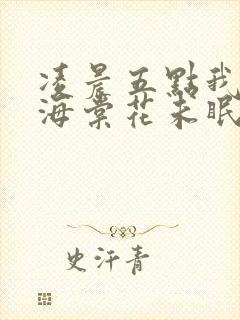 凌晨五點我
海棠花未眠
史汗青